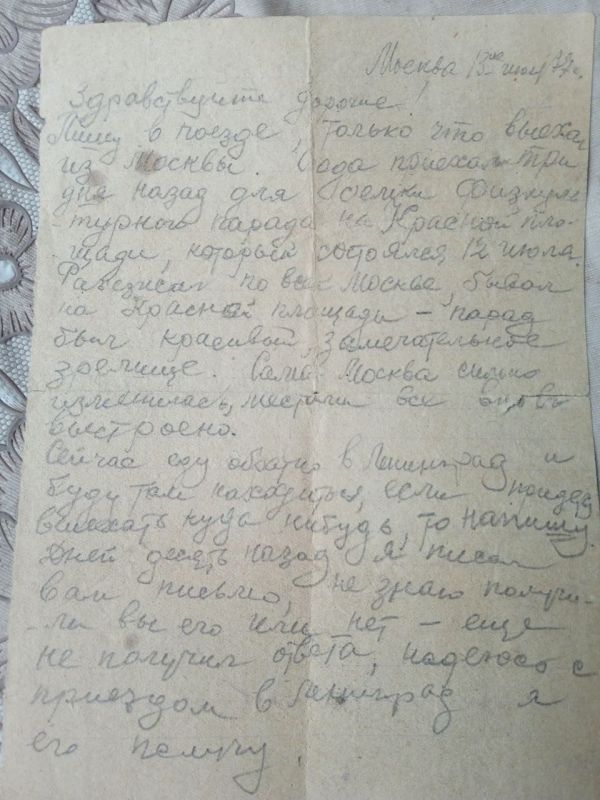 Москва 13го июля 37г.
Здравствуйте дорогие!
Пишу в поезде, только что выехал
из Москвы. Сюда приехал три
дня назад для съемки Физкуль-
турного парада на Красной пло-
щади, который состоялся 12 июля.
по всей Москве, бывал
на Красной площади – парад
был красивый, замечательное
зрелище. Сама Москва сильно
изменилась, местами вся вновь
выстроено.
Сейчас еду обратно в Ленинград и
буду там находиться, если придет
выехать куда нибудь, то напишу.
Дней десять назад я писал
вам письмо, не знаю получи-
-ли вы его или нет – еще
не получил ответа, надеюсь с
приездом в Ленинград я
его получу.